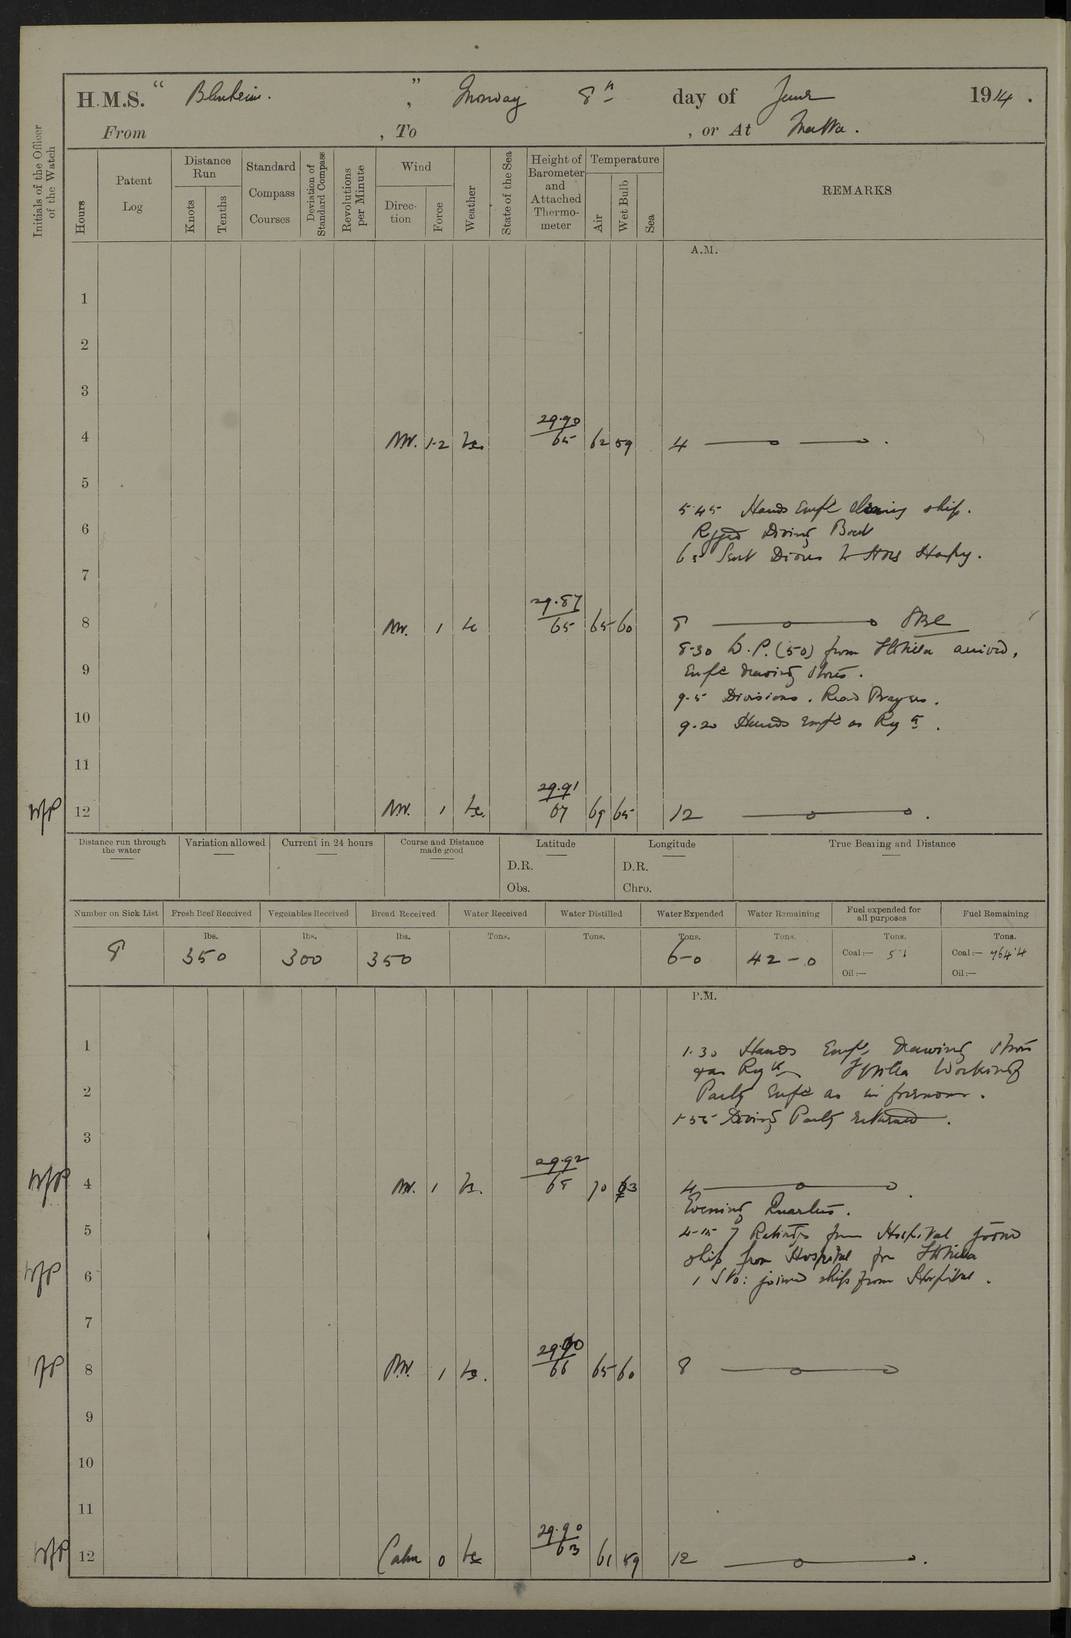 H.M.S. " Blenheim. " , Monday 8th day of June 1914 .
From , To , or At Malta .
Initials of the Officer of the Watch
Hours
Patent Log
Distance Run
Knots
Tenths
Standard Compass Courses
Deviation of Standard Compass
Revolutions per Minute
Wind
Direction
Force
Weather
State of the Sea
Height of Barometer and Attached Thermometer
Temperature
Air
Wet Bulb
Sea
REMARKS
A.M.
1
2
3
4 NW. 1-2 29.90 65 62 59 4
5
5.45 Hands Empd cleaning ship.
6 Rigged Diving Boat
Sent Divers to HMS Harpy.
7
8 NW. 1 29.87 65 65 60 8
8.30 W.P. (50) from arrived,
9 Empd drawing stores.
9.5 Divisions. Read Prayers.
10 9.20 Hands Empd as Reqd.
11
12 NW. 1 29.91 67 69 65 12
Distance run through the water
Variation allowed
Current in 24 hours
Course and Distance made good
Latitude
D.R.
Obs.
Longitude
D.R.
Chro.
True Bearing and Distance
Number on Sick List
Fresh Beef Received
Vegetables Received
Bread Received
Water Received
Water Distilled
Water Expended
Water Remaining
Fuel expended for all purposes
Fuel Remaining
lbs. lbs. lbs. Tons. Tons. Tons. Tons. Tons. Tons.
8 350 300 350 60 42-0 Coal:— 5.1 Coal:— 764.4
Oil:— Oil:—
P.M.
1 1.30 Hands Empd drawing stores
Working
2 Party Empd as in forenoon.
Diving Party returned.
3
4 NW. 1 29.92 68 70 63 4
Evening Quarters.
5 4-15 7 Ratings from Hospital joined
ship from Hospital for
6 1 Sto: joined ship from Hospital.
7
8 NW. 1 29.90 66 65 60 8
9
10
11
12 Calm 0 29.90 63 61 59 12